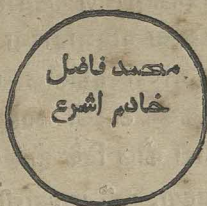 محمد فاضل
خادم اشرع